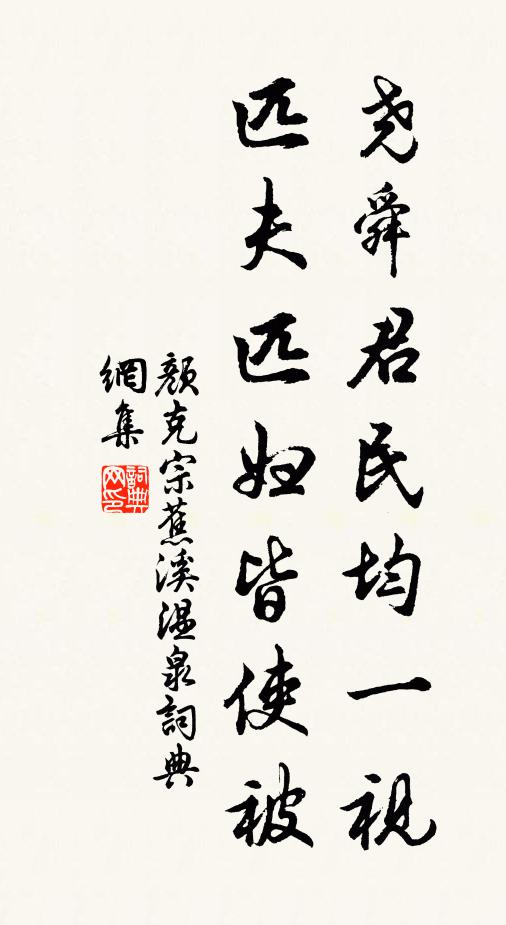 尧舜君民均一視
匹夫匹妇皆使被
顏克宗蕉溪温泉詞典
網集
詞典
网印